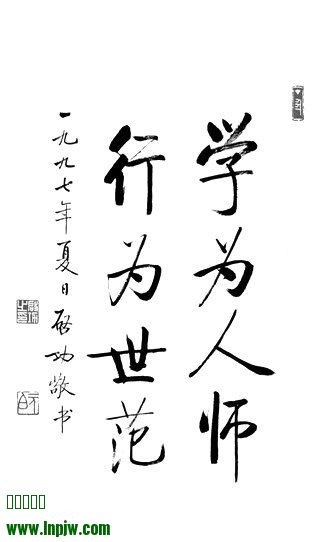 学为人师
行为世范
一九九七年夏日启功敬书
www.lnpjw.com